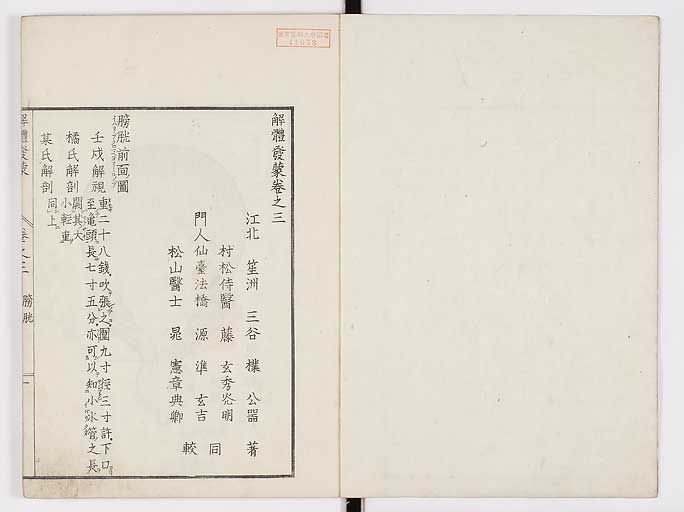 解體發蒙卷之三
江北 笙洲 三谷 樸 公器 著
村松侍醫 藤 玄秀 明
門人仙臺法橋 源 準 玄吉 同
松山醫士 晁 憲章典卿 較
膀胱前面圖
壬戍解視 重二十八錢吹張之圍九寸徑三寸許下口
至龜頭長七寸五分亦可以知小水管之長
橘氏解剖 闕其大小輕重
某氏解剖 同上
解體發蒙 卷之三 膀胱 一